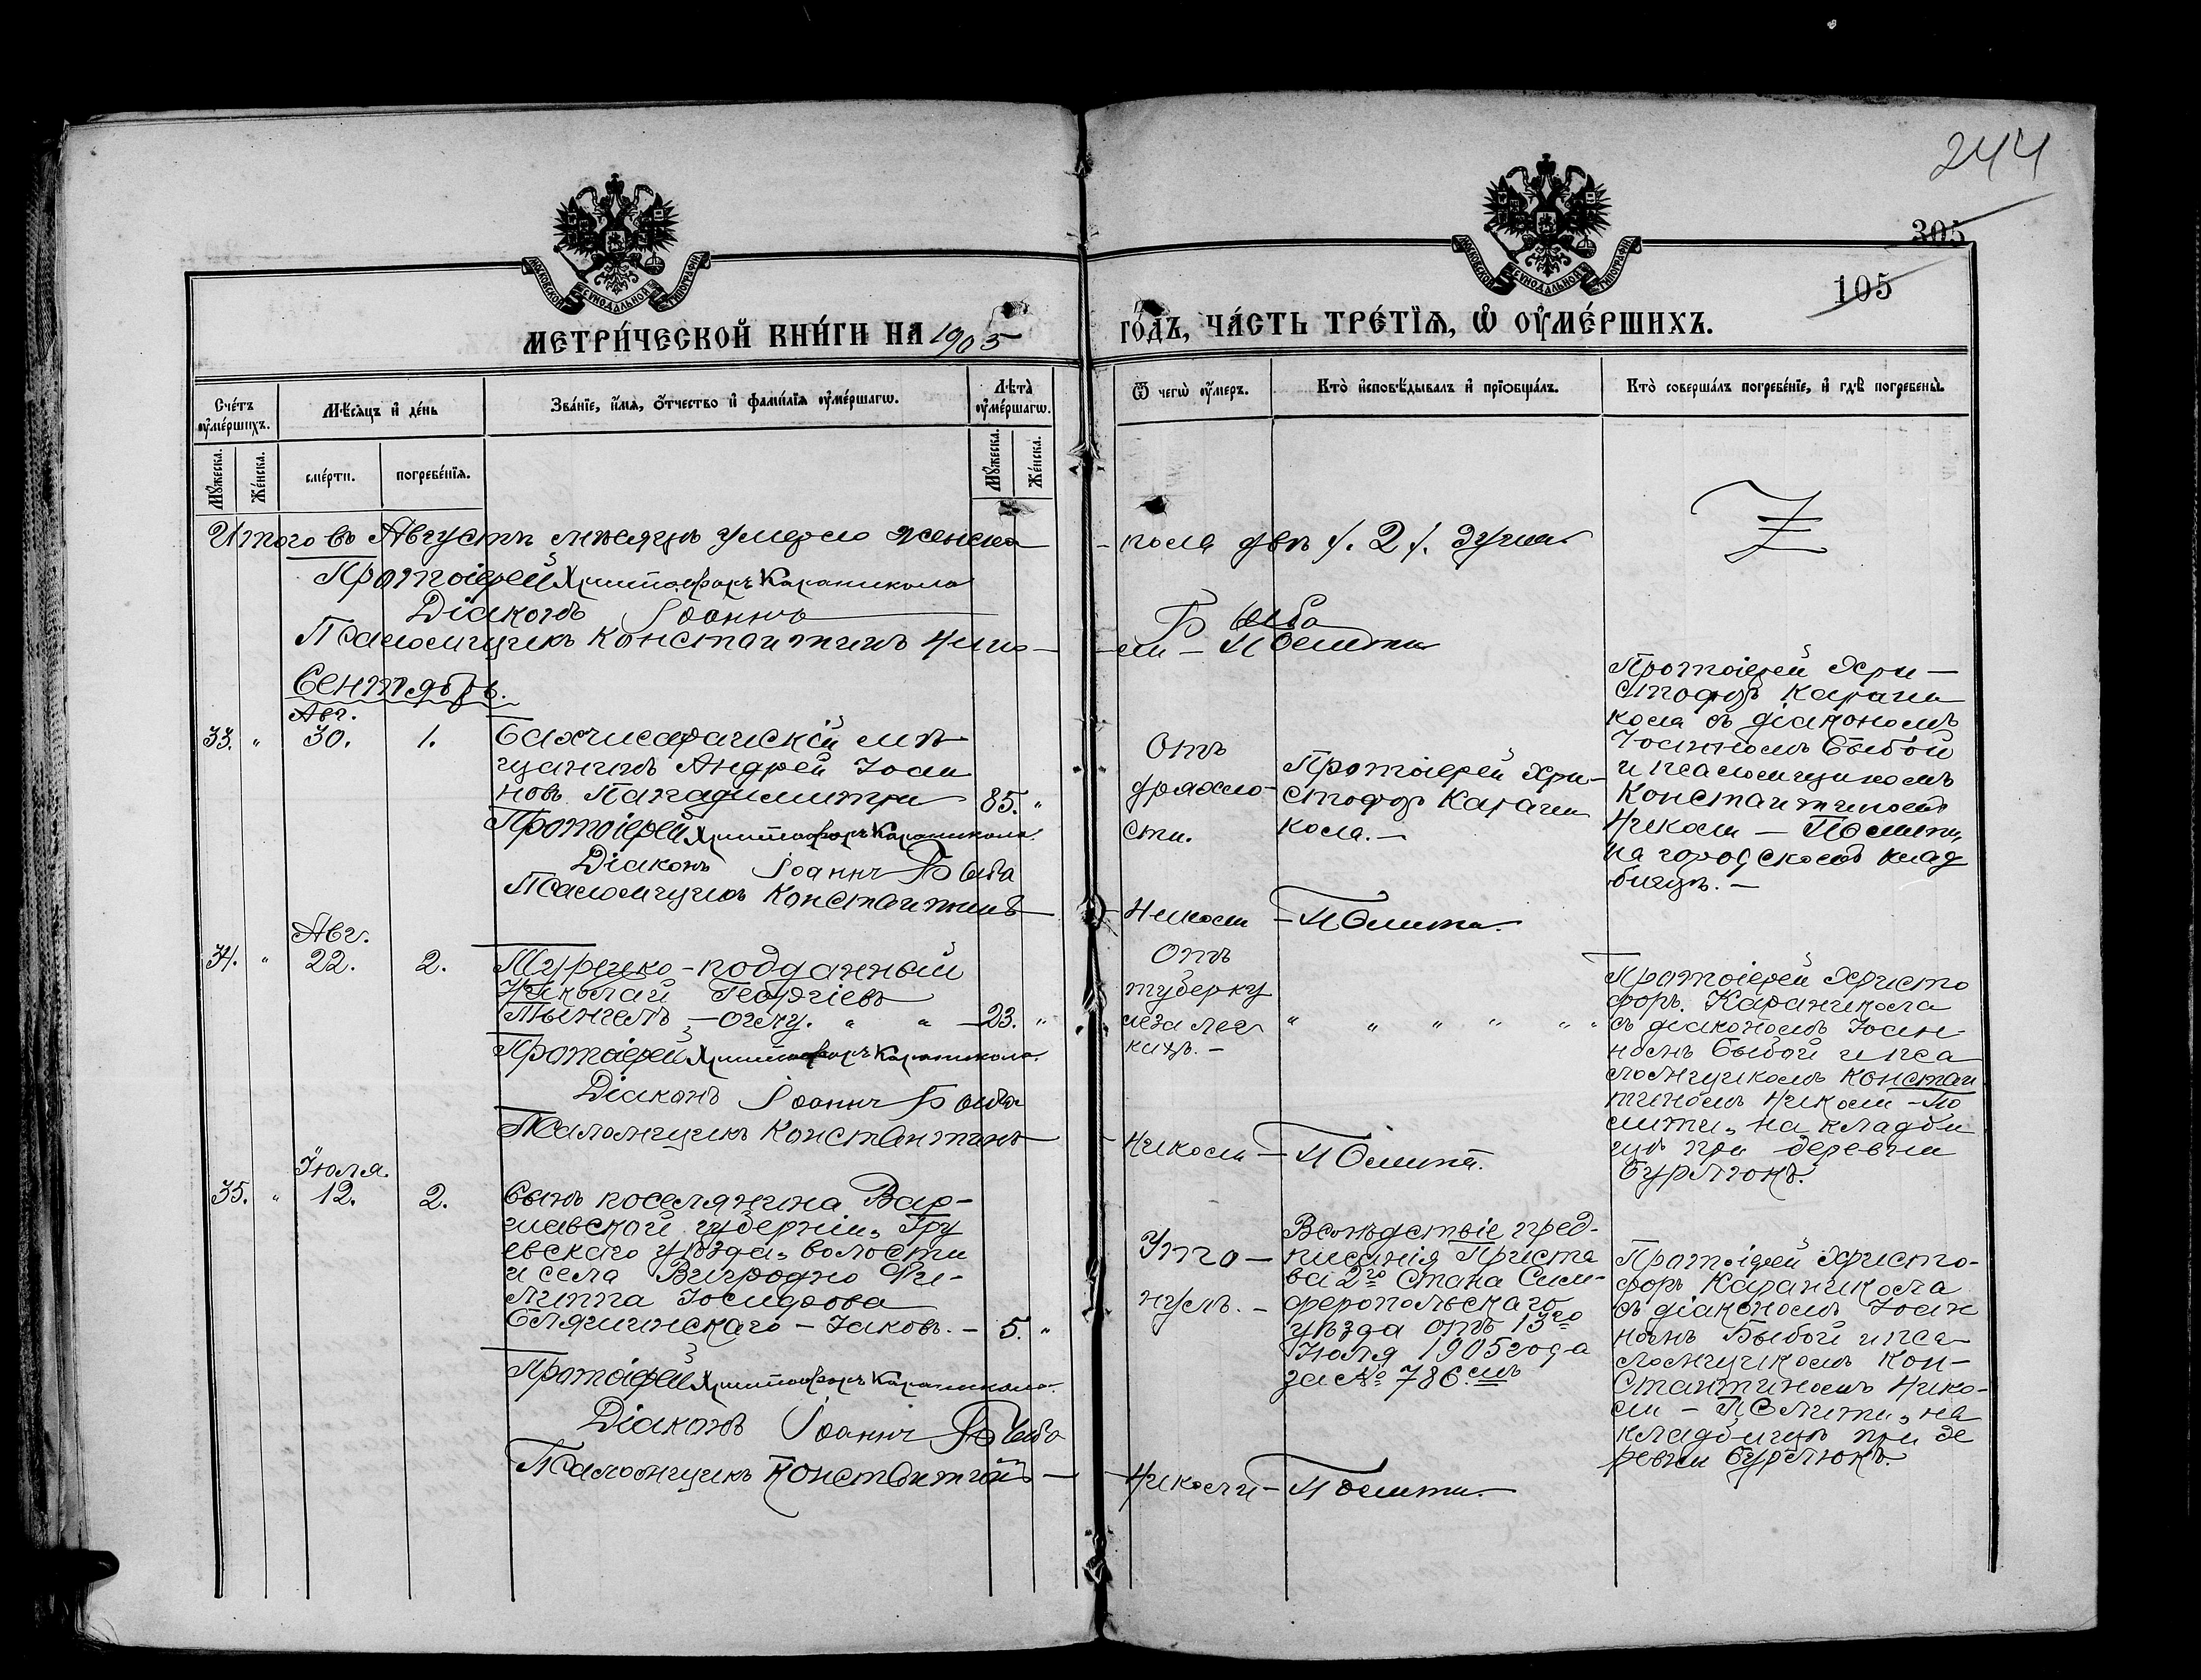 244
305
105
МОСКОВСКОЙ СѴНОДАЛЬНОЙ ТИПОГРАФІИ
МОСКОВСКОЙ СѴНОДАЛЬНОЙ ТИПОГРАФІИ
МЕТРИ́ЧЕСКОЙ КНИ́ГИ НА 1905 ГО́ДЪ, ЧА́СТЬ ТРЕ́ТЇѦ, Ѡ҆ ОУ҆МЕ́РШИХЪ.
Сче́тъ оу҆ме́ршихъ.
Мꙋжеска.
Же́нска.
Мѣ́сѧцъ и҆ де́нь
сме́рти.
погребе́нїѧ.
Зва́нїе, и҆́мѧ, ѻ҆́тчество и҆ фами́лїѧ оу҆ме́ршагѡ.
Лѣта̀ оу҆ме́ршагѡ.
Мꙋжеска.
Же́нска.
Ѿ чегѡ̀ оу҆́меръ.
Кто̀ и҆сповѣ́дывалъ и҆ прїѡбща́лъ.
Кто̀ соверша́лъ погребе́нїе, и҆ гдѣ̀ погребены̀.
Итого въ Августѣ мѣсяцѣ умерло женска- -пола двѣ /. 2 /. души
Протоіерей Христофоръ Караникола
Діаконъ Іоаннъ Быба
Псаломщикъ Константинъ Нико- -ли - Полити
Сентябрь.
Авг.
33. " 30. 1.
Бахчисарайскій мѣ-
щанинъ Андрей Іоан
новъ Пападимитри 85. "
Отъ
дряхло-
сти.
Протоіерей Хри-
стофоръ Карани
кола. -
Протоіерей Хри-
стофоръ Карани
кола съ діакономъ
Іоанномъ Быбой
и псаломщикомъ
Константиномъ
Николи - Полити,
на городскомъ клад
бищѣ. -
Протоіерей Христофоръ Караникола.
Діаконъ Іоаннъ Быба
Псаломщикъ Константинъ - Николи - Полити.
Авг.
34. " 22. 2.
Турецко-подданный
Николай Георгіевъ
- оглу. " " - 23. "
Отъ
туберку
леза лег
кихъ. -
" " " " " "
Протоіерей Христо
форъ Караникола
съ діакономъ Іоан-
номъ Быбой и пса
ломщикомъ Констан
тиномъ Николи - По
лити, на кладби
щѣ при деревни
Бурлюкъ.
Протоіерей Христофоръ Караникола.
Діаконъ Іоаннъ Быба
Псаломщикъ Константинъ - Николи - Полити.
Іюля.
35. " 12. 2.
Сынъ поселянина Вар-
шавской губерніи, Гру
евскаго уѣзда, волости
и села Вигродно Фи-
липпа Іосифова
- Іаковъ. - 5. "
Уто-
нулъ. -
Вслѣдствіе пред-
писанія Приста
ва 2го Стана Сим-
феропольскаго
уѣзда отъ 13го
Іюля 1905 года
за № 786.мъ
Протоіерей Христо-
форъ Караникола
съ діакономъ Іоан
номъ Быбой и пса-
ломщикомъ Кон-
стантиномъ Нико-
ли - Полити, на
кладбищѣ при де
ревни Бурлюкъ.
Протоіерей Христофоръ Караникола.
Діаконъ Іоаннъ Быба
Псаломщикъ Константинъ - Николи - Полити.